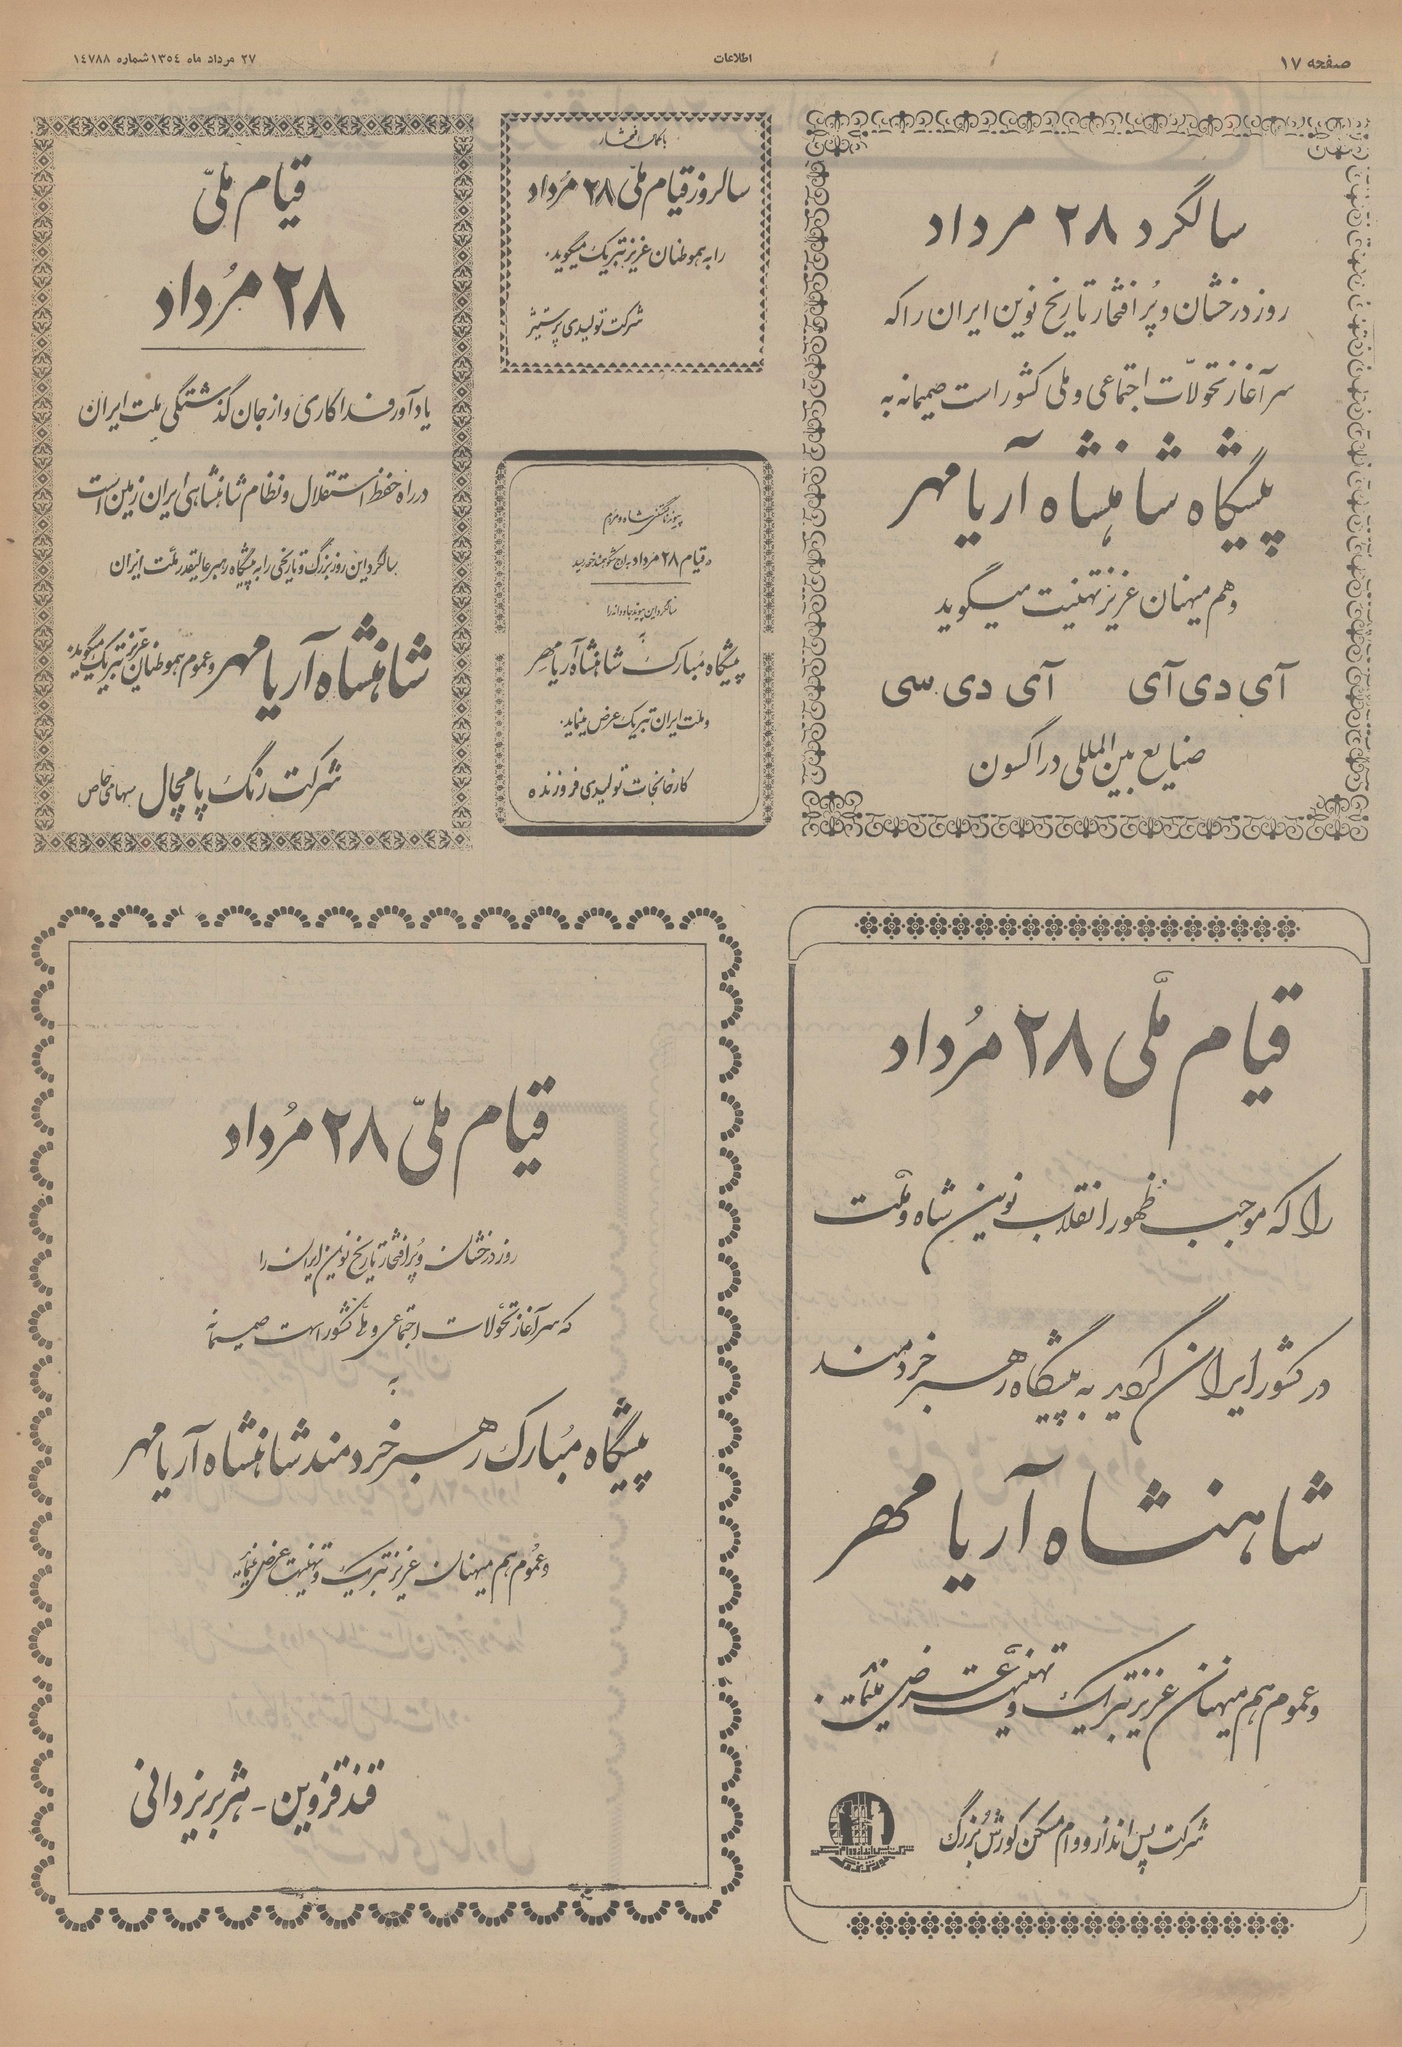 صفحه ۱۷
اطلاعات
۲۷ مرداد ماه ۱۳۵٤ شماره ۱٤۷۸۸
سالگرد ۲۸ مرداد
روز درخشان و پُر افتخار تاریخ نوین ایران را که
سر آغاز تحولّات اجتماعی و ملی کشور است صمیمانه به
پیشگاه شاهنشاه آریامهر
و هم میهنان عزیز تهنیت میگوید
آی دی آی آی دی سی
صنایع بین المللی دراگسون
با کمال افتخار
سالروز قیام ملّی ۲۸ مُرداد
را به هموطنان عزیز تبریک میگوید.
شرکت تولیدی پرستیژ
پیوند ناگسستنی شاه و مردم
در قیام ۲۸ مرداد به اوج شکوهمند خود رسید
سالگرد این پیوند جاودانه را
به
پیشگاه مُبارک شاهنشاه آریامهر
و ملت ایران تبریک عرض مینماید.
کارخانجات تولیدی فروزنده
قیام ملّی
۲۸ مُرداد
یادآور فداکاری و از جان گذشتگی ملت ایران
در راه حفظ استقلال و نظام شاهنشاهی ایران زمین است
سالگرد این روز بزرگ و تاریخی را به پیشگاه رهبر عالیقدر ملّت ایران
شاهنشاه آریامهر و عموم هموطنان عزیز تبریک میگوید.
شرکت رنگ پامچال سهامی خاص
قیام ملّی ۲۸ مُرداد
را که موجب ظهور انقلاب نوین شاه و ملّت
در کشور ایران گردید به پیشگاه رهبر خردمند
شاهنشاه آریامهر
و عموم هم میهنان عزیز تبریک و تهنیت عرض مینماید.
شرکت پس انداز و وام مسکن کورش بُزرگ
قیام ملّی ۲۸ مُرداد
روز درخشان و پُر افتخار تاریخ نوین ایران را
که سر آغاز تحوّلات اجتماعی و ملّی کشور است صمیمانه
به
پیشگاه مُبارک رهبر خردمند شاهنشاه آریامهر
و عُموم هم میهنان عزیز تبریک و تهنیت عرض مینماید
قند قزوین - هژبر یزدانی